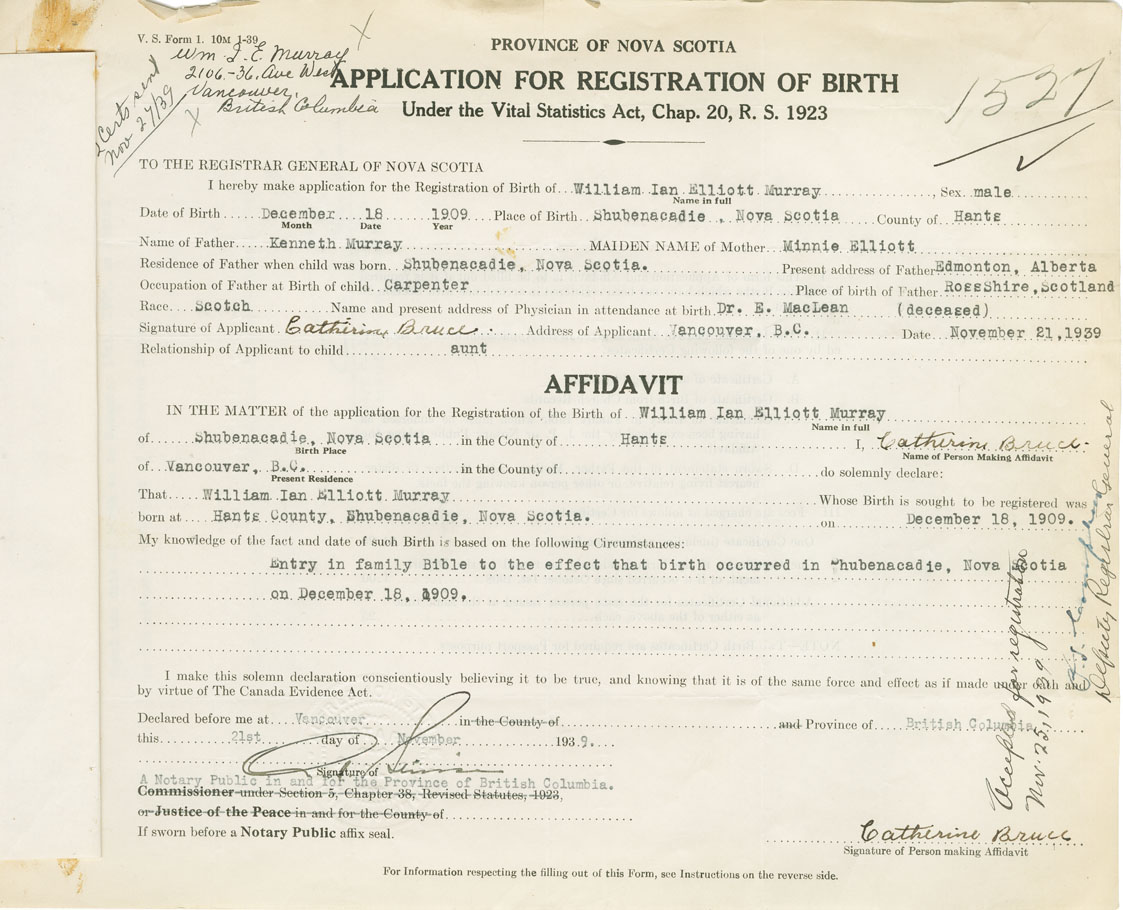 V. S. Form 1. 10M 1-39
Wm I. E. Murray
2106-36, Ave West
Vancouver,
British Columbia
2 Certs sent
Nov 27/39
PROVINCE OF NOVA SCOTIA
APPLICATION FOR REGISTRATION OF BIRTH
Under the Vital Statistics Act, Chap. 20, R. S. 1923
1527
TO THE REGISTRAR GENERAL OF NOVA SCOTIA
I hereby make application for the Registration of Birth of William Ian Elliott Murray, Sex male
Name in full
Date of Birth December 18 1909 Place of Birth Shubenacadie, Nova Scotia County of Hants
Month Date Year
Name of Father Kenneth Murray MAIDEN NAME of Mother Minnie Elliott
Residence of Father when child was born Shubenacadie, Nova Scotia. Present address of Father Edmonton, Alberta
Occupation of Father at Birth of child Carpenter Place of birth of Father RossShire, Scotland
Race Scotch Name and present address of Physician in attendance at birth Dr. E. MacLean (deceased)
Signature of Applicant Catherine Bruce Address of Applicant Vancouver, B.C. Date November 21, 1939
Relationship of Applicant to child aunt
AFFIDAVIT
IN THE MATTER of the application for the Registration of the Birth of William Ian Elliott Murray
Name in full
of Shubenacadie, Nova Scotia in the County of Hants I, Catherine Bruce
Birth Place Name of Person Making Affidavit
of Vancouver, B.C. in the County of do solemnly declare:
Present Residence
That William Ian Elliott Murray Whose Birth is sought to be registered was
born at Hants County, Shubenacadie, Nova Scotia. on December 18, 1909.
My knowledge of the fact and date of such Birth is based on the following Circumstances:
Entry in family Bible to the effect that birth occurred in Shubenacadie, Nova Scotia
on December 18, 1909.
I make this solemn declaration conscientiously believing it to be true, and knowing that it is of the same force and effect as if made under oath and
by virtue of The Canada Evidence Act.
Declared before me at Vancouver in the County of and Province of British Columbia
this 21st day of November 1939.
Signature of
A Notary Public in and for the Province of British Columbia.
Commissioner under Section 5, Chapter 38, Revised Statutes, 1923,
or Justice of the Peace in and for the County of
If sworn before a Notary Public affix seal.
Catherine Bruce
Signature of Person making Affidavit
For Information respecting the filling out of this Form, see Instructions on the reverse side.
Accepted for registration
Nov. 25, 1939
Deputy Registrar General